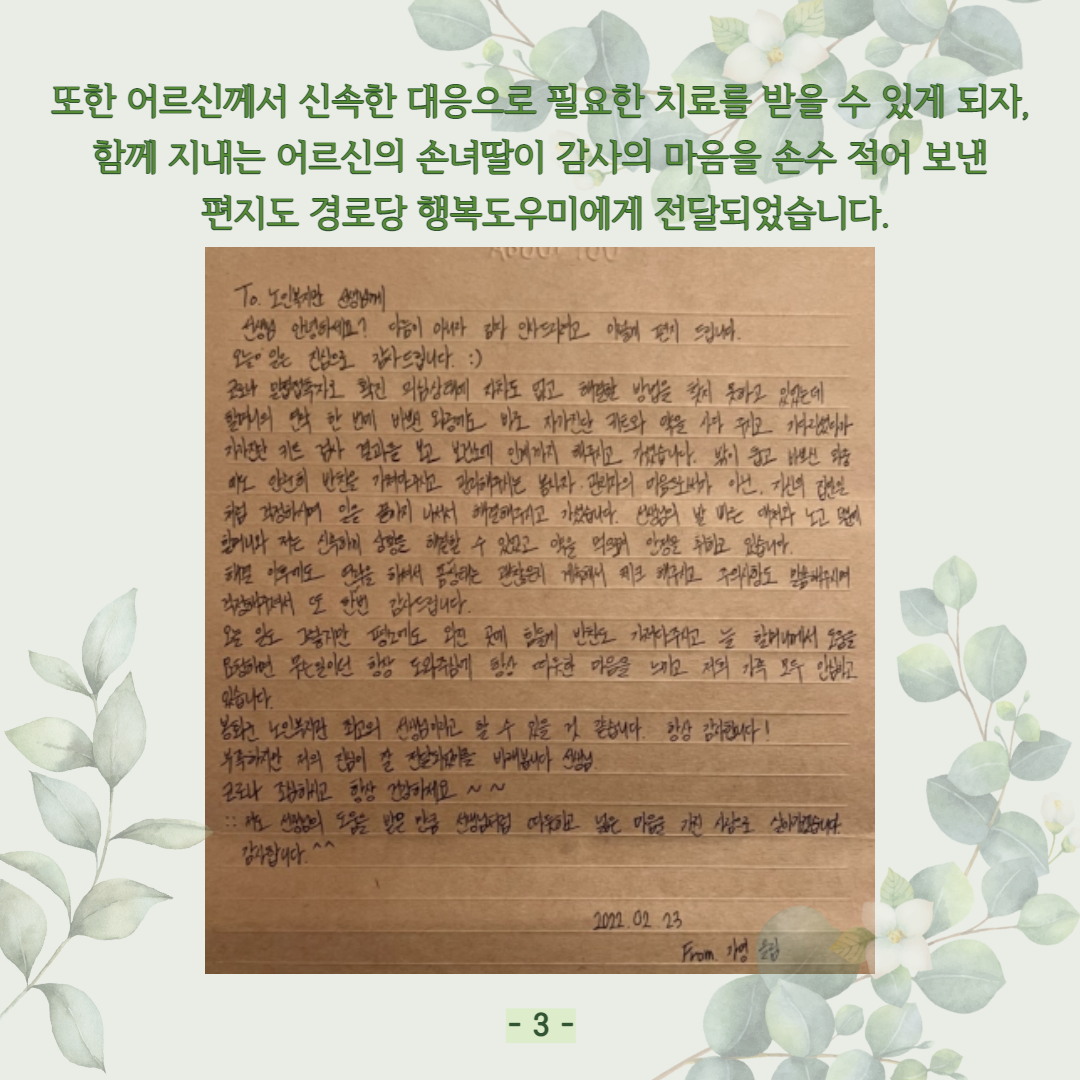 또한 어르신께서 신속한 대응으로 필요한 치료를 받을 수 있게 되자,
함께 지내는 어르신의 손녀딸이 감사의 마음을 손수 적어 보낸
편지도 경로당 행복도우미에게 전달되었습니다.
ABOUT YOU
To. 노인복지관 선생님께
선생님 안녕하세요? 다름이 아니라 감사 인사드리려고 이렇게 편지 드립니다.
오늘 일은 진심으로 감사드립니다. :)
코로나 밀접접촉자로 확진 의심상태에 차차도 없고 해결할 방법을 찾지 못하고 있었는데
할머니의 연락 한 번에 바쁜 와중에도 바로 자가진단 키트와 약을 사다 주시고 기다리셨다가
자가진단 키트 검사 결과를 보고 보건소에 인계까지 해주시고 가셨습니다. 밖이 춥고 바쁘신 와중
에도 안전히 반찬을 가져다주시고 관리해주시는 봉사자·관리자의 마음으로써가 아닌, 자신의 집안일
처럼 걱정하시며 일을 끝까지 나서서 해결해주시고 가셨습니다. 선생님의 발 빠른 대처와 노고 덕분에
할머니와 저는 신속하게 상황을 해결할 수 있었고 약을 먹으며 안정을 취하고 있습니다.
해결 이후에도 연락을 하셔서 몸상태는 괜찮은지 계속해서 체크 해주시고 주의사항도 말씀해주시며
걱정해주셔서 또 한번 감사드립니다.
오늘 일도 그렇지만 평소에도 외진 곳에 힘들게 반찬도 가져다주시고 늘 할머니께서 도움을
요청하면 무슨일이던 항상 도와주심에 항상 따뜻한 마음을 느끼고 저희 가족 모두 안심하고
있습니다.
봉화군 노인복지관 최고의 선생님이라고 할 수 있을 것 같습니다. 항상 감사합니다!
부족하지만 저의 진심이 잘 전달되었기를 바래봅니다 선생님.
코로나 조심하시고 항상 건강하세요 ~ ~
:: 저도 선생님의 도움을 받은 만큼 선생님처럼 따뜻하고 넓은 마음을 가진 사람으로 살아가겠습니다.
감사합니다. ^^
2022. 02. 23
From. 가영 올림
- 3 -